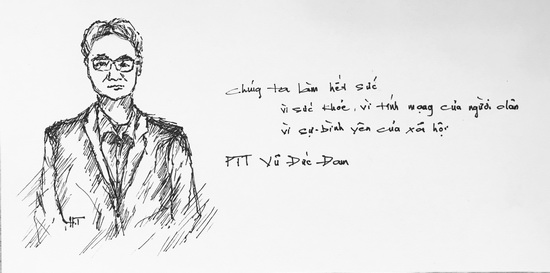 Chúng ta làm hết sức
vì sức khỏe, vì tính mạng của người dân
vì sự bình yên của xã hội
PTT Vũ Đức Đam